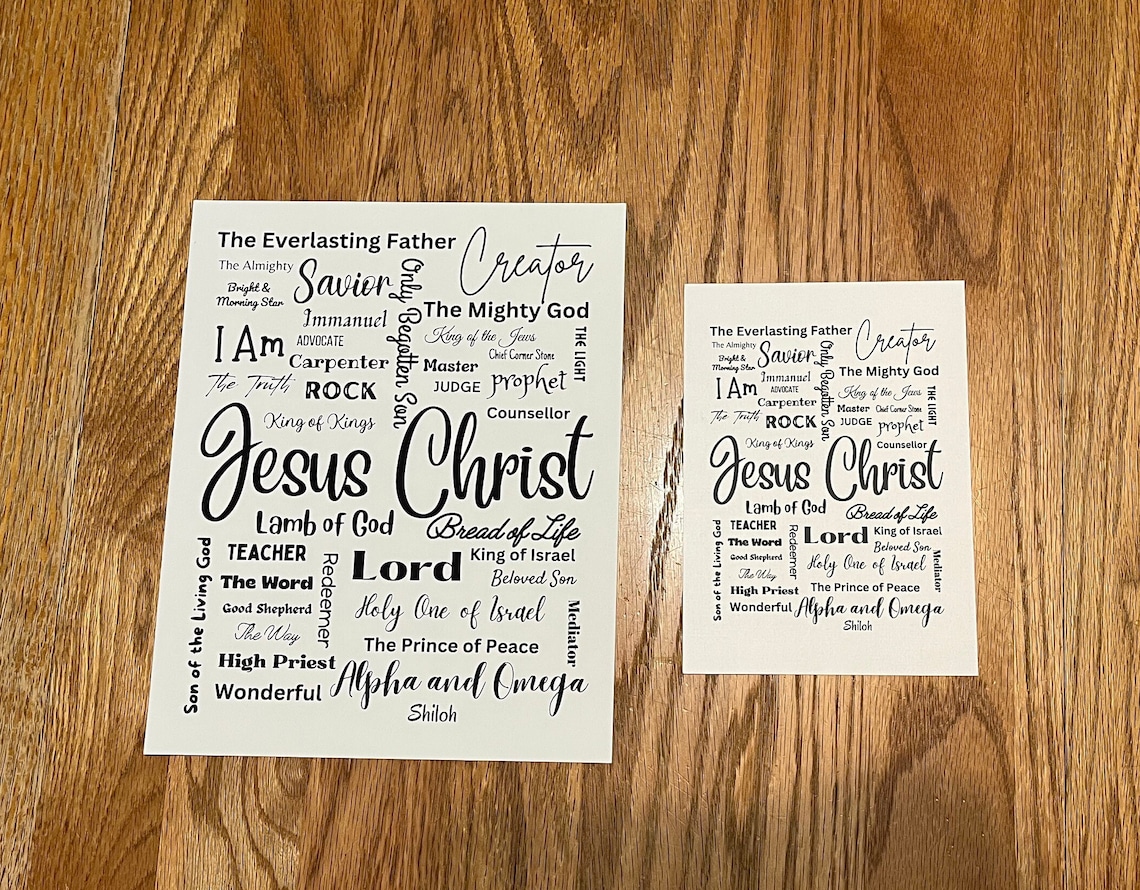 The Everlasting Father
Creator
The Almighty
Savior
Only Begotten Son
Bright &
Morning Star
The Mighty God
Immanuel
King of the Jews
THE LIGHT
I Am
ADVOCATE
Chief Corner Stone
Carpenter
Master
prophet
The Truth
ROCK
JUDGE
King of Kings
Counsellor
Jesus Christ
Lamb of God
Bread of Life
Son of the Living God
TEACHER
Redeemer
Lord
King of Israel
The Word
Beloved Son
Good Shepherd
Holy One of Israel
Mediator
The Way
The Prince of Peace
High Priest
Wonderful
Alpha and Omega
Shiloh
The Everlasting Father
Creator
The Almighty
Savior
Only Begotten Son
Bright &
Morning Star
The Mighty God
Immanuel
King of the Jews
THE LIGHT
I Am
ADVOCATE
Carpenter
Master
Chief Corner Stone
The Truth
ROCK
JUDGE
prophet
King of Kings
Counsellor
Jesus Christ
Lamb of God
Bread of Life
Son of the Living God
TEACHER
Redeemer
Lord
King of Israel
The Word
Beloved Son
Good Shepherd
Holy One of Israel
Mediator
The Way
The Prince of Peace
High Priest
Wonderful
Alpha and Omega
Shiloh